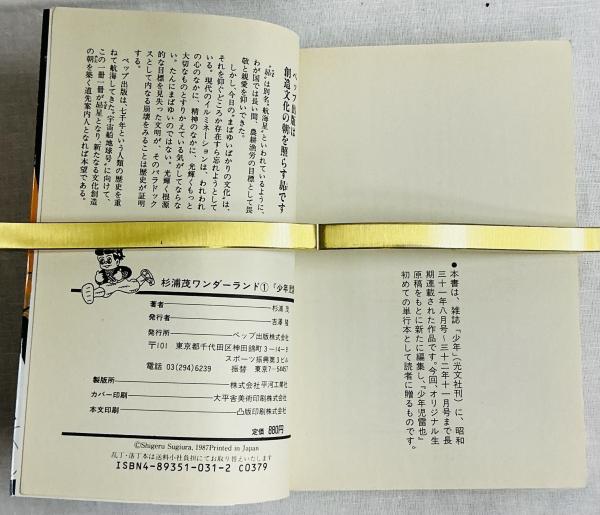 ●本書は、雑誌「少年」(光文社刊)に、昭和
三十一年八月号〜三十二年十一月号まで長
期連載された作品です。今回、オリジナル生
原稿をもとに新たに編集し、『少年児雷也』
初めての単行本として読者に贈るものです。
ペップ出版は
創造文化の朝を照らす昴です
"昴"は別名"航海星"といわれているように、
わが国では長い間、農耕漁労の目標として畏
敬と親愛を仰いできた。
しかし、今日の"まばゆいばかりの文化"は、
それを仰ぐどころか存在すら忘れようとして
いる。現代のイルミネーションは、われわれ
の心のなかに、精神のなかに、光輝くもっと
大切なものとすりかえている気がしてならな
い。たんにまばゆいのではない"光輝く根源
的な目標を見失った文明が、そのパラドック
スとして内なる崩壊をみることは歴史が証明
する。
ペップ出版は、七千年という人類の歴史を重
ねて航海してきた"宇宙船地球号"に向けて、
この一冊一冊が昴星となり新たなる文化創造
の朝を築く道先案内人となれば本望である。
杉浦茂ワンダーランド①『少年児
著者 杉浦 茂
発行者 吉澤
発行所 ペップ出版株式会社
〒101 東京都千代田区神田錦町3-14-8
スポーツ振興第3ビル
電話 03(294)6239 振替 東京7-5467
製版所 株式会社平河工業社
カバー印刷 大平舎美術印刷株式会社
本文印刷 凸版印刷株式会社
定価 880円
©Shigeru Sugiura, 1987 Printed in Japan
乱丁・落丁本は送料小社負担にてお取り替えいたします
ISBN4-89351-031-2 C0379